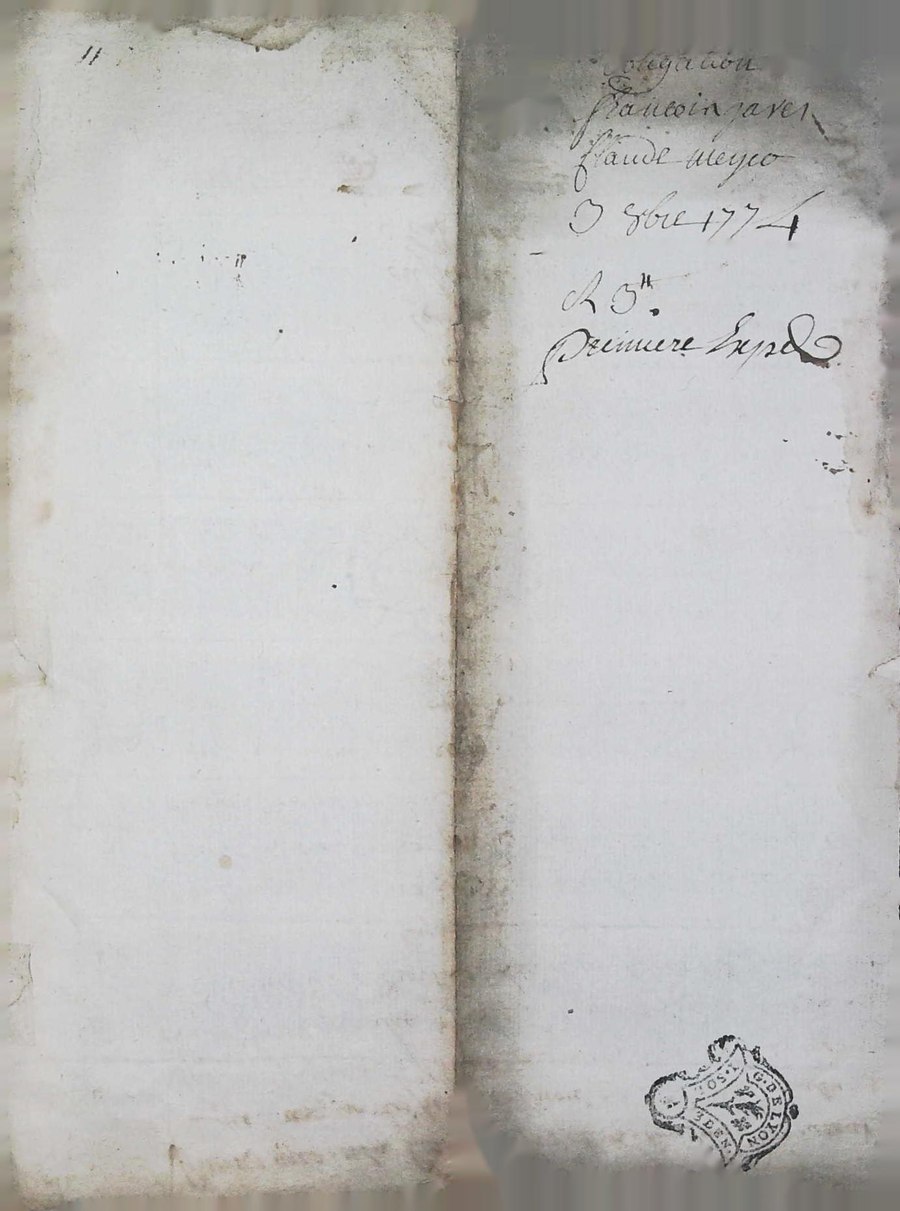 11
obligation
francois javes
Claude meyco
3 8bre 1774
R 3#.
premiere Exped
G. DE LYON
DEN.